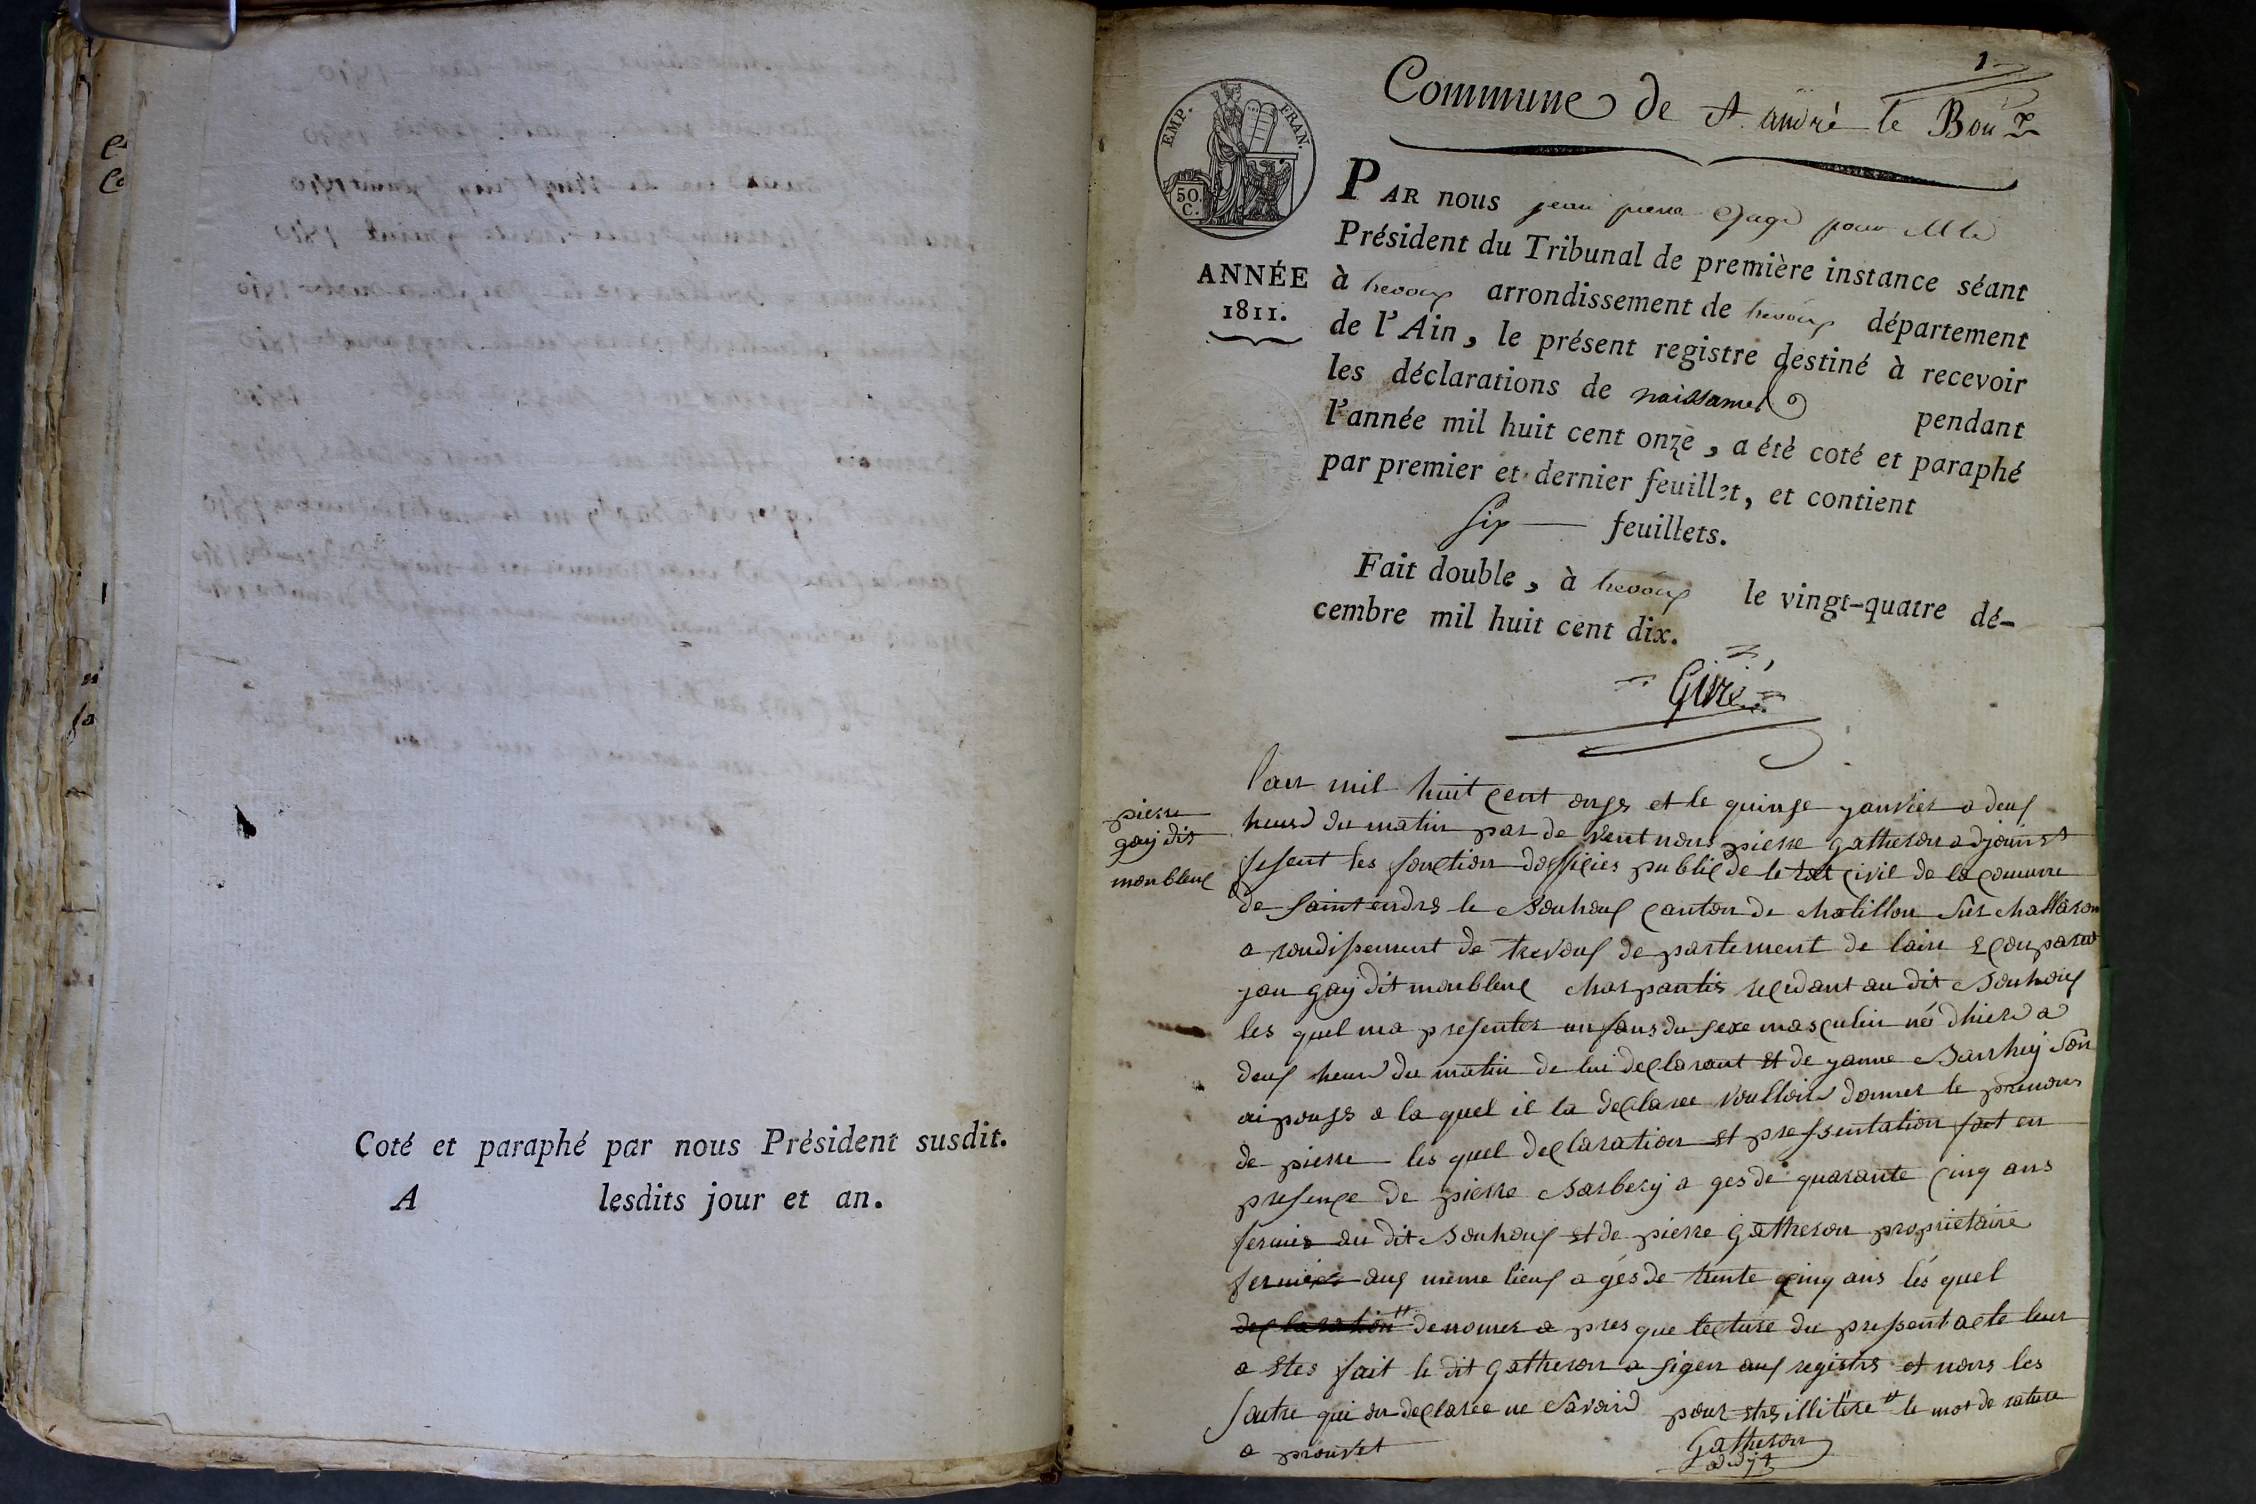 Coté et paraphé par nous Président susdit.
A lesdits jour et an.
1
Commune de St. andré le Bou.x
EMP. FRAN.
50.
C.
ANNÉE
1811.
PAR nous jean pierre pour Mr le
Président du Tribunal de première instance séant
à trevoux arrondissement de trevoux département
de l'Ain, le présent registre destiné à recevoir
les déclarations de naissances pendant
l'année mil huit cent onze, a été coté et paraphé
par premier et dernier feuillet, et contient
six feuillets.
Fait double, à trevoux le vingt-quatre dé-
cembre mil huit cent dix.
pierre
gay dit
monbleux
l'an mil huit cent onze et le quinze yanvier a deux
heures du matin par de vent nous pierre gatheron adjoint
fesent les fonction dofficies public de le tat civil de la comune
de saint endre le Bouhoux canton de chatillon sur challaron
a rondissement de trevoux de partement de lain
gay dit monbleux charpantie residant au dit Bouhoux
les quel ma presenter un fans du sexe masculin né dhiere a
deux heures du matin de lui declarant et de yanne Barhey son
ai pouse a la quel il la declaree voulloire donner le prenons
de pierre les quel declaration et pressentation fait en
presence de pierre Barbery a ges de quarante cinq ans
fermie au dit Bouhoux et de pierre gatheron proprietaire
fermier aux meme lieux a gés de trente cinq ans les quel
declaration denomer a pres que lecture du pressent acte leur
a etes fait le dit gatheron a sigen aux registre et nons les
sautre qui on declaree ne savoire pour etre illitere le mot de rature
a prouvet
Gatheron
adjt